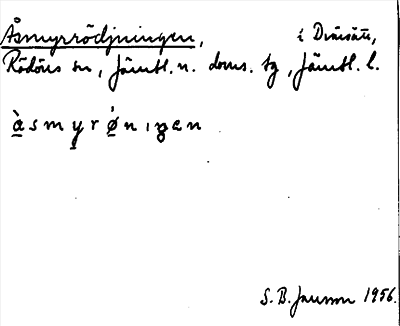 Åsmyrrödjningen, i Dvärsätt,
Rödöns sn, Jämtl. n. doms. tg, Jämtl. l.
à̱ s m y̱ r ǿ̱ n ı ŋ e n
S. B. Jansson 1956.